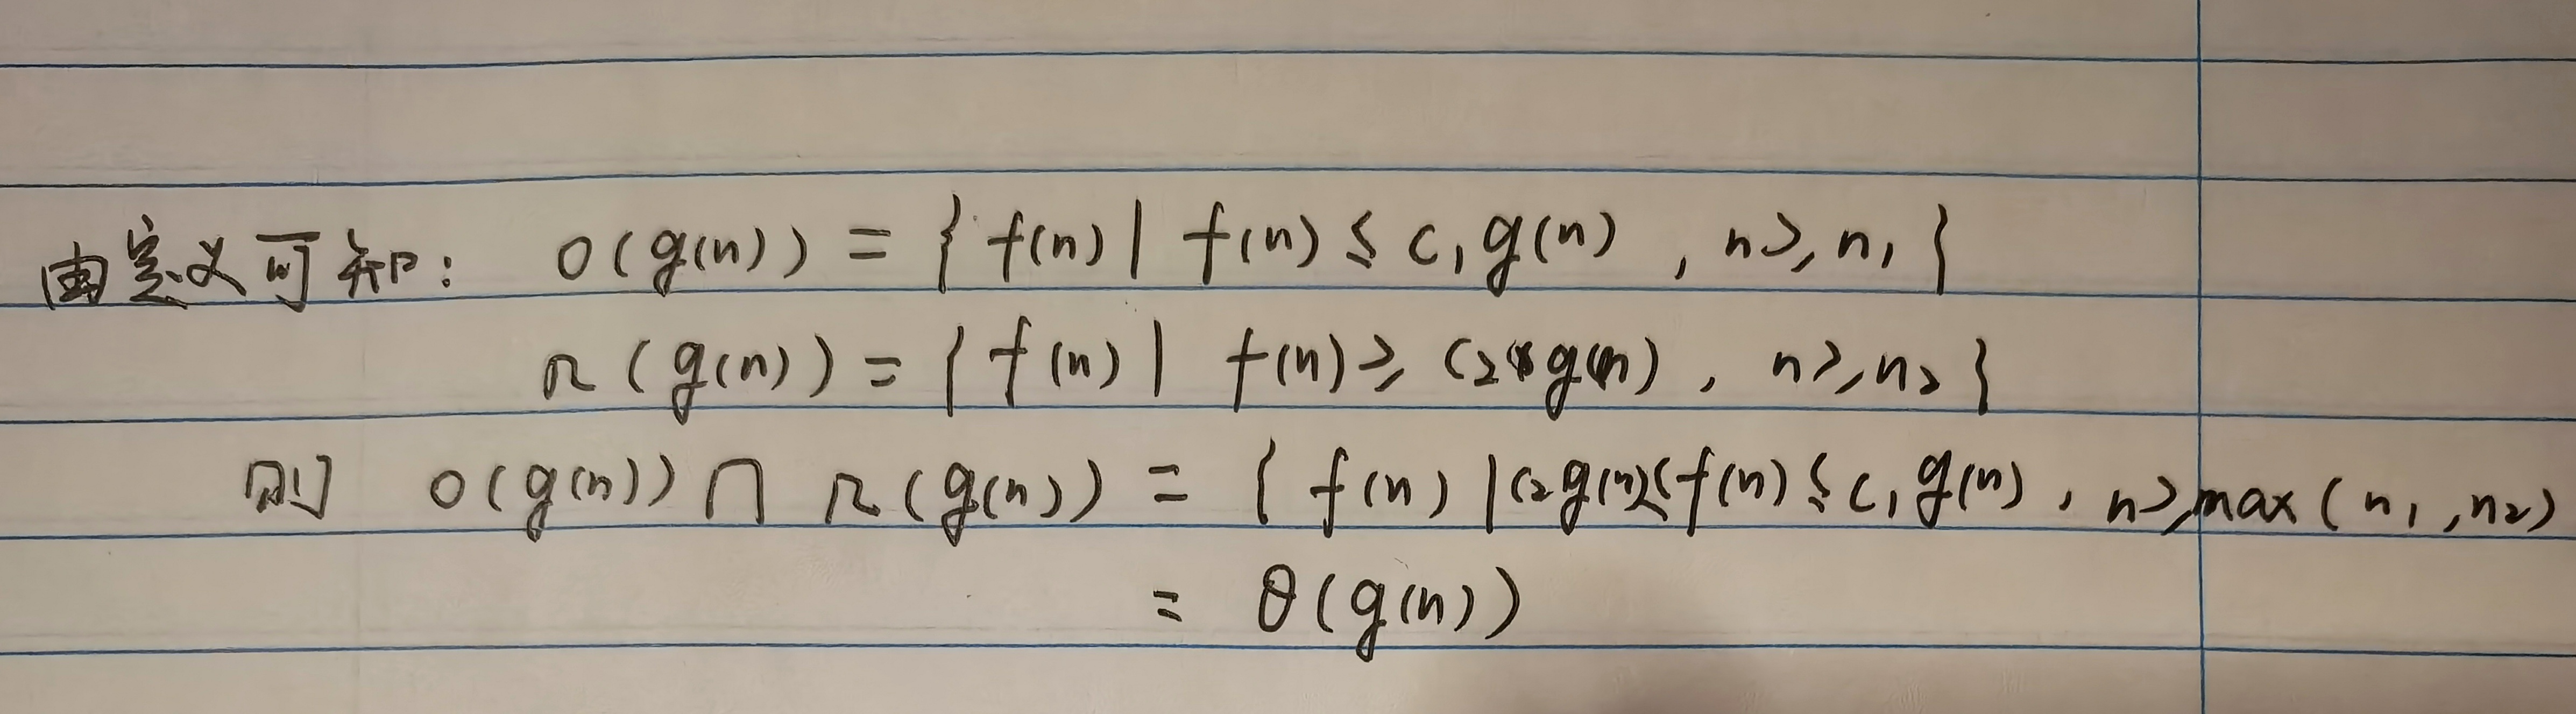 由定义可知: O(g(n)) = { f(n) | f(n) ≤ c₁g(n) , n≥n₁ }
Ω(g(n)) = { f(n) | f(n) ≥ c₂g(n) , n≥n₂ }
则 O(g(n)) ∩ Ω(g(n)) = { f(n) | c₂g(n)≤f(n) ≤ c₁g(n) , n≥max(n₁,n₂)
= θ(g(n))